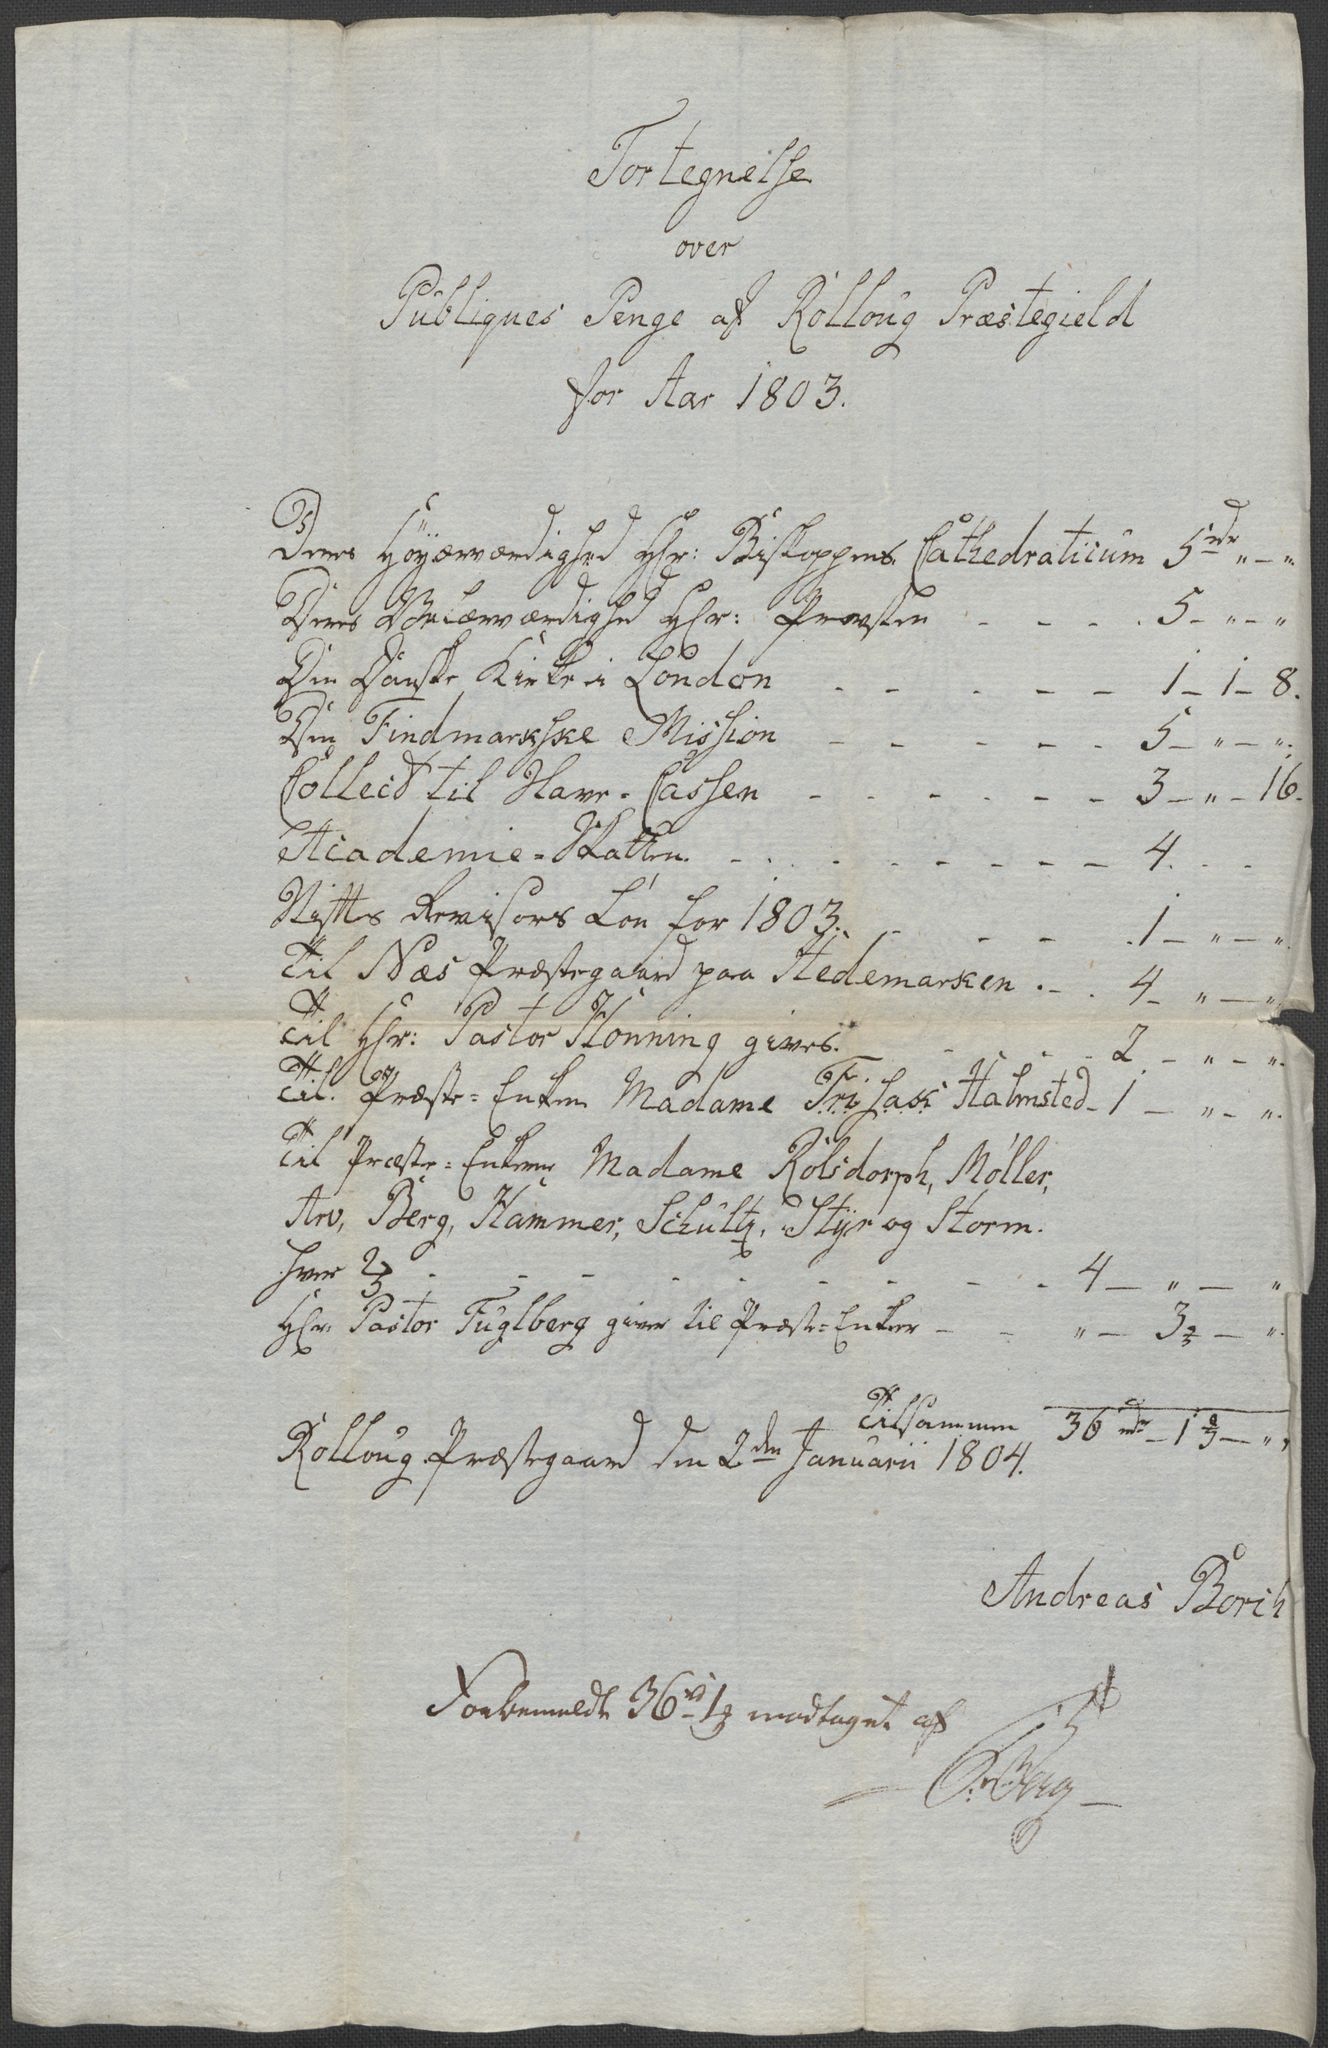 Fortegnelse
over
Publiqves Penge af Rolloug Præstegield
for Aar 1803.
Deres Höyærværdighed Hr: Biskoppens Cathedraticum 5 rdr „ – „
Deres Velærværdighed Hr: Provsten - - - . 5 - „ - „
Den Danske Kirke i London - - - - - 1 - 1 - 8.
Den Findmarkske Mission - - - - - 5 - „ - „.
Collect til Havne-Cassen - - - - - - 3 - „ - 16.
Academie-Skatten. - - - - - - - - 4. - -
Stifts Revisors Lön for 1803. - - - . 1 - „ - „.
Til Næs Præstegaard paa Hedemarken . - . 4 - „ - „
Til Hr: Pastor Honning gives. - - - - 2 - „ - „.
Til Præste-Enken Madame Halmsted - 1 - „ - „.
Til Præste-Enkerne Madame Rolsdorph, Möller,
Arv, Berg, Hammer, Schultz, Styr og Storm.
hver 2/3 - - - - - - - - - 4 - „ - „
Hr. Pastor Fuglberg giver til Præste-Enker - - „ - 3 2/3 - „.
Tilsammen 36 rdr - 1 2/3 - „.
Rolloug Præstegaard den 2den Januarii 1804.
Andreas Borch
Forbemeldte 36 modtaget af
Berg